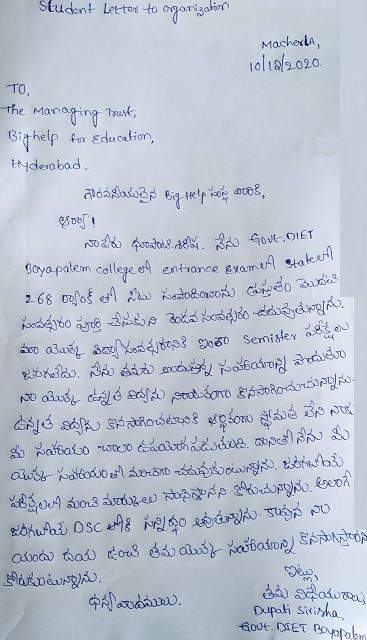 Student Letter to organization
Macherla,
10/12/2020.
TO,
The Managing Trust,
Bighelp for Education,
Hyderabad.
గౌరవనీయులైన Big Help సంస్థ వారికి,
ఆర్యా!
నా పేరు దూపాటి శిరీష. నేను Govt. DIET
Boyapalem college లో entrance Exam లో State లో
268 ర్యాంక్ తో సీటు సంపాదించాను. ప్రస్తుతం మొదటి
సంవత్సరం పూర్తి చేసుకుని రెండవ సంవత్సరం చదువుతున్నాను.
మా యొక్క విద్యాసంవత్సరానికి ఇంకా Semister పరీక్షలు
జరుగలేదు. నేను తమరు అందిస్తున్న సహాయాన్ని పొందుతూ
నా యొక్క ఉన్నత విద్యను కొనసాగించుచున్నాను.
ఉన్నత విద్యను కొనసాగించటానికి ఆర్థికంగా స్థోమత లేని నాకు
మీ సహాయం చాలా ఉపయోగపడుతుంది. దానితో నేను మీ
యొక్క సహాయంతో మంచిగా చదువుకుంటున్నాను. జరుగబోయే
పరీక్షలలో మంచి మార్కులు సాధిస్తానని కోరుచున్నాను. అలాగే
జరుగబోయే DSC లోకి సన్నిద్ధం అవుతున్నాను. కావున నా
యందు దయ ఉంచి తమ యొక్క సహాయాన్ని కొనసాగిస్తారని
కోరుకుంటున్నాను.
ఇట్లు,
ధన్యవాదములు.
తమ విధేయురాలు
Dupati Sirisha,
Govt. DIET Boyapalem